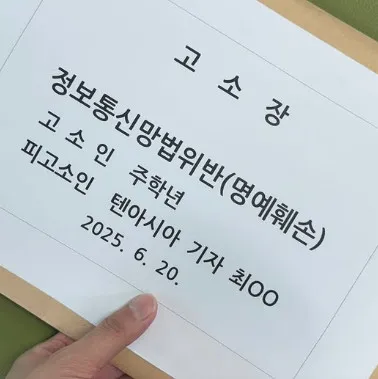 고 소 장
정보통신망법위반(명예훼손)
고 소 인 주학년
피고소인 텐아시아 기자 최OO
2025. 6. 20.